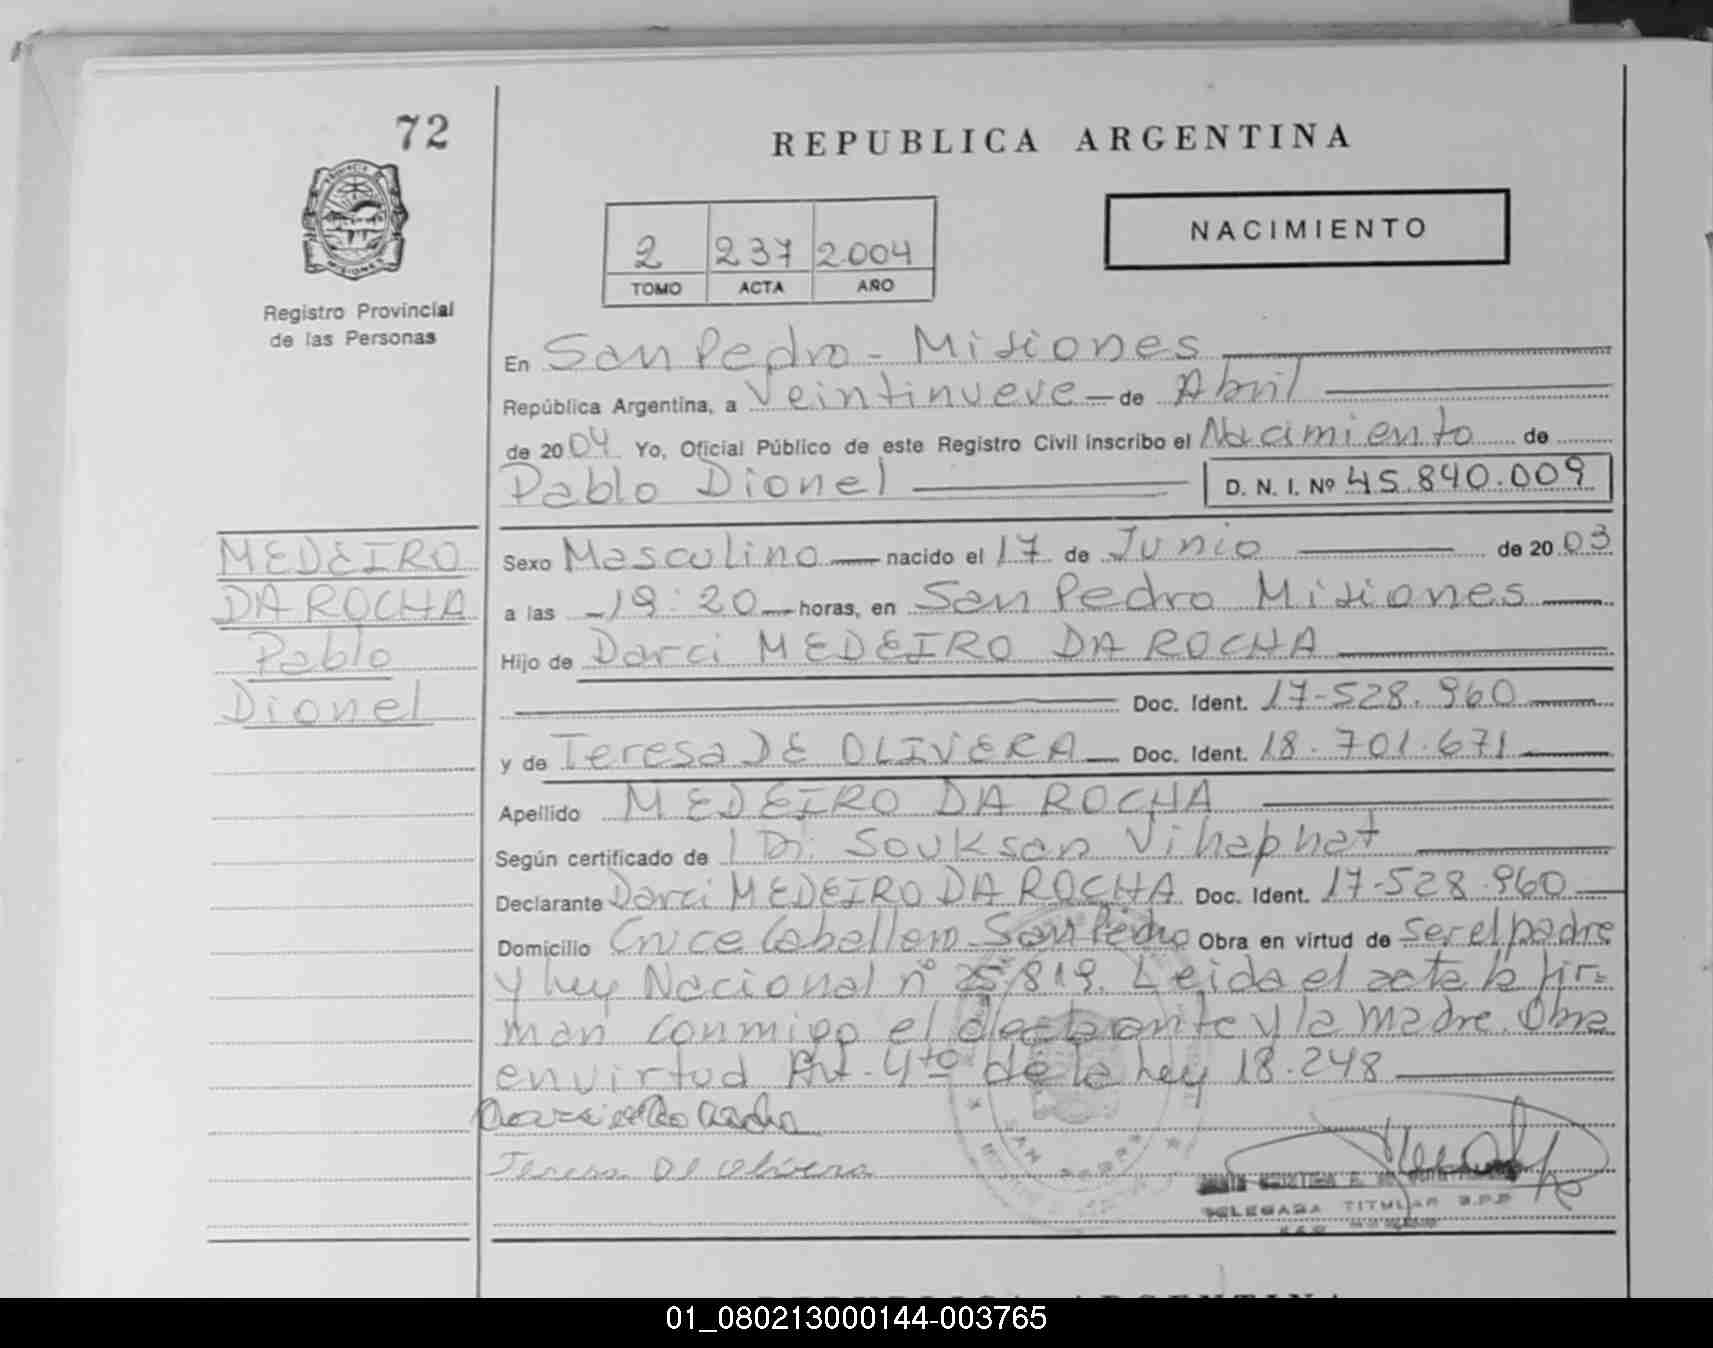 72
REPUBLICA ARGENTINA
NACIMIENTO
2 237 2004
TOMO ACTA AÑO
PROVINCIA D
MISIONES
Registro Provincial
de las Personas
En San Pedro - Misiones
República Argentina, a Veintinueve - de Abril
de 2004 Yo, Oficial Público de este Registro Civil inscribo el Nacimiento de
Pablo Dionel D. N. I. Nº 45.840.009
MEDEIRO
DA ROCHA
Pablo
Dionel
Sexo Masculino - nacido el 17 de Junio de 2003
a las - 19:20 - horas, en San Pedro Misiones
Hijo de Darci MEDEIRO DA ROCHA
Doc. Ident. 17-528.960
y de Teresa DE OLIVERA - Doc. Ident. 18.701.671
Apellido MEDEIRO DA ROCHA
Según certificado de Souksan Vihaphat
Declarante Darci MEDEIRO DA ROCHA Doc. Ident. 17-528.960
Domicilio Cruce Caballero San Pedro Obra en virtud de ser el padre
y ley Nacional nº 25.819. Leida el acta la fir=
man conmigo el declarante y la madre. Obra
en virtud Art. 4to de la ley 18.248
Teresa De Olivera
SAN PEDRO
DELEGADA TITULAR R.P.P.
REPUBLICA ARGENTINA
01_080213000144-003765